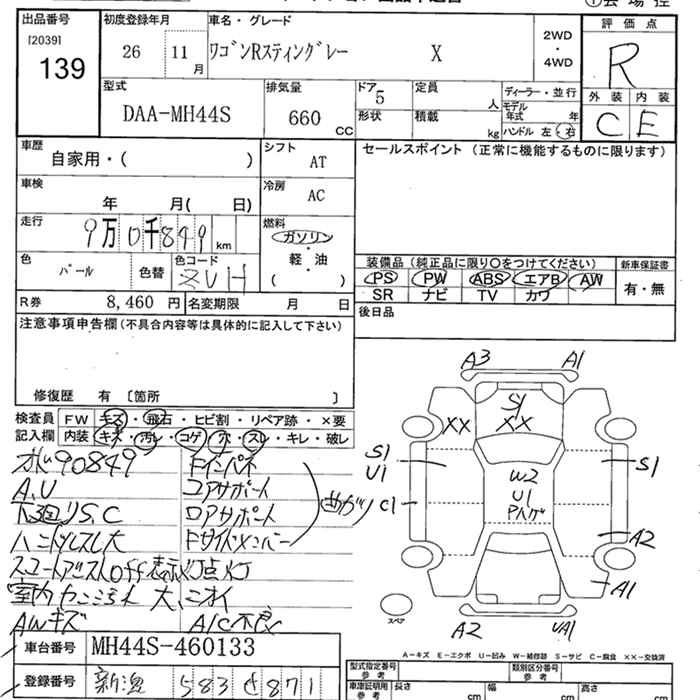 出品番号
[2039]
139
初度登録年月
26
11
月
車名・グレード
ワゴンRスティングレー X
2WD
・
4WD
評価点
R
外装 内装
C E
型式
DAA-MH44S
排気量
660
CC
ドア
5
形状
定員
人
積載
kg
ディーラー・並行
モデル
年式 年
ハンドル 左・右
車歴
自家用・( )
シフト
AT
セールスポイント (正常に機能するものに限ります)
車検
年 月( 日)
冷房
AC
走行
9万0千849
km
燃料
ガソリン
・
軽・油
・
( )
色
パール
色替
色コード
ZVH
装備品 (純正品に限り○をつけてください)
新車保証書
PS PW ABS エアB AW
SR ナビ TV カワ
有・無
R券
8,460 円
名変期限
月 日
後日品
注意事項申告欄 (不具合内容等は具体的に記入して下さい)
修復歴 有 〔箇所 〕
検査員
記入欄
FW キズ・飛石・ヒビ割・リペア跡・×要
内装 キズ・汚レ・コゲ・穴・スレ・キレ・破レ
オド90849
A,U
下廻りS,C
ハンドルスレ大
スタートアシストOff表示灯点灯
室内 大、ニオイ
AWキズ
A/C不良
Fインパネ
コアサポート
ロアサポート
Fサイドメンバー
曲がり
A3 A1
S1
XX XX
S1
U1
S1
W2
U1
Pハゲ
C1
A2
A1
スペア
A2
UA1
A－キズ E－エクボ U－凹み W－補修跡 S－サビ C－腐食 ××－交換済
車台番号
MH44S-460133
登録番号
新潟 583 さ 871
型式指定番号
参考
類別区分番号
参考
車庫証明用
参考
長さ
cm
幅
cm
高さ
cm